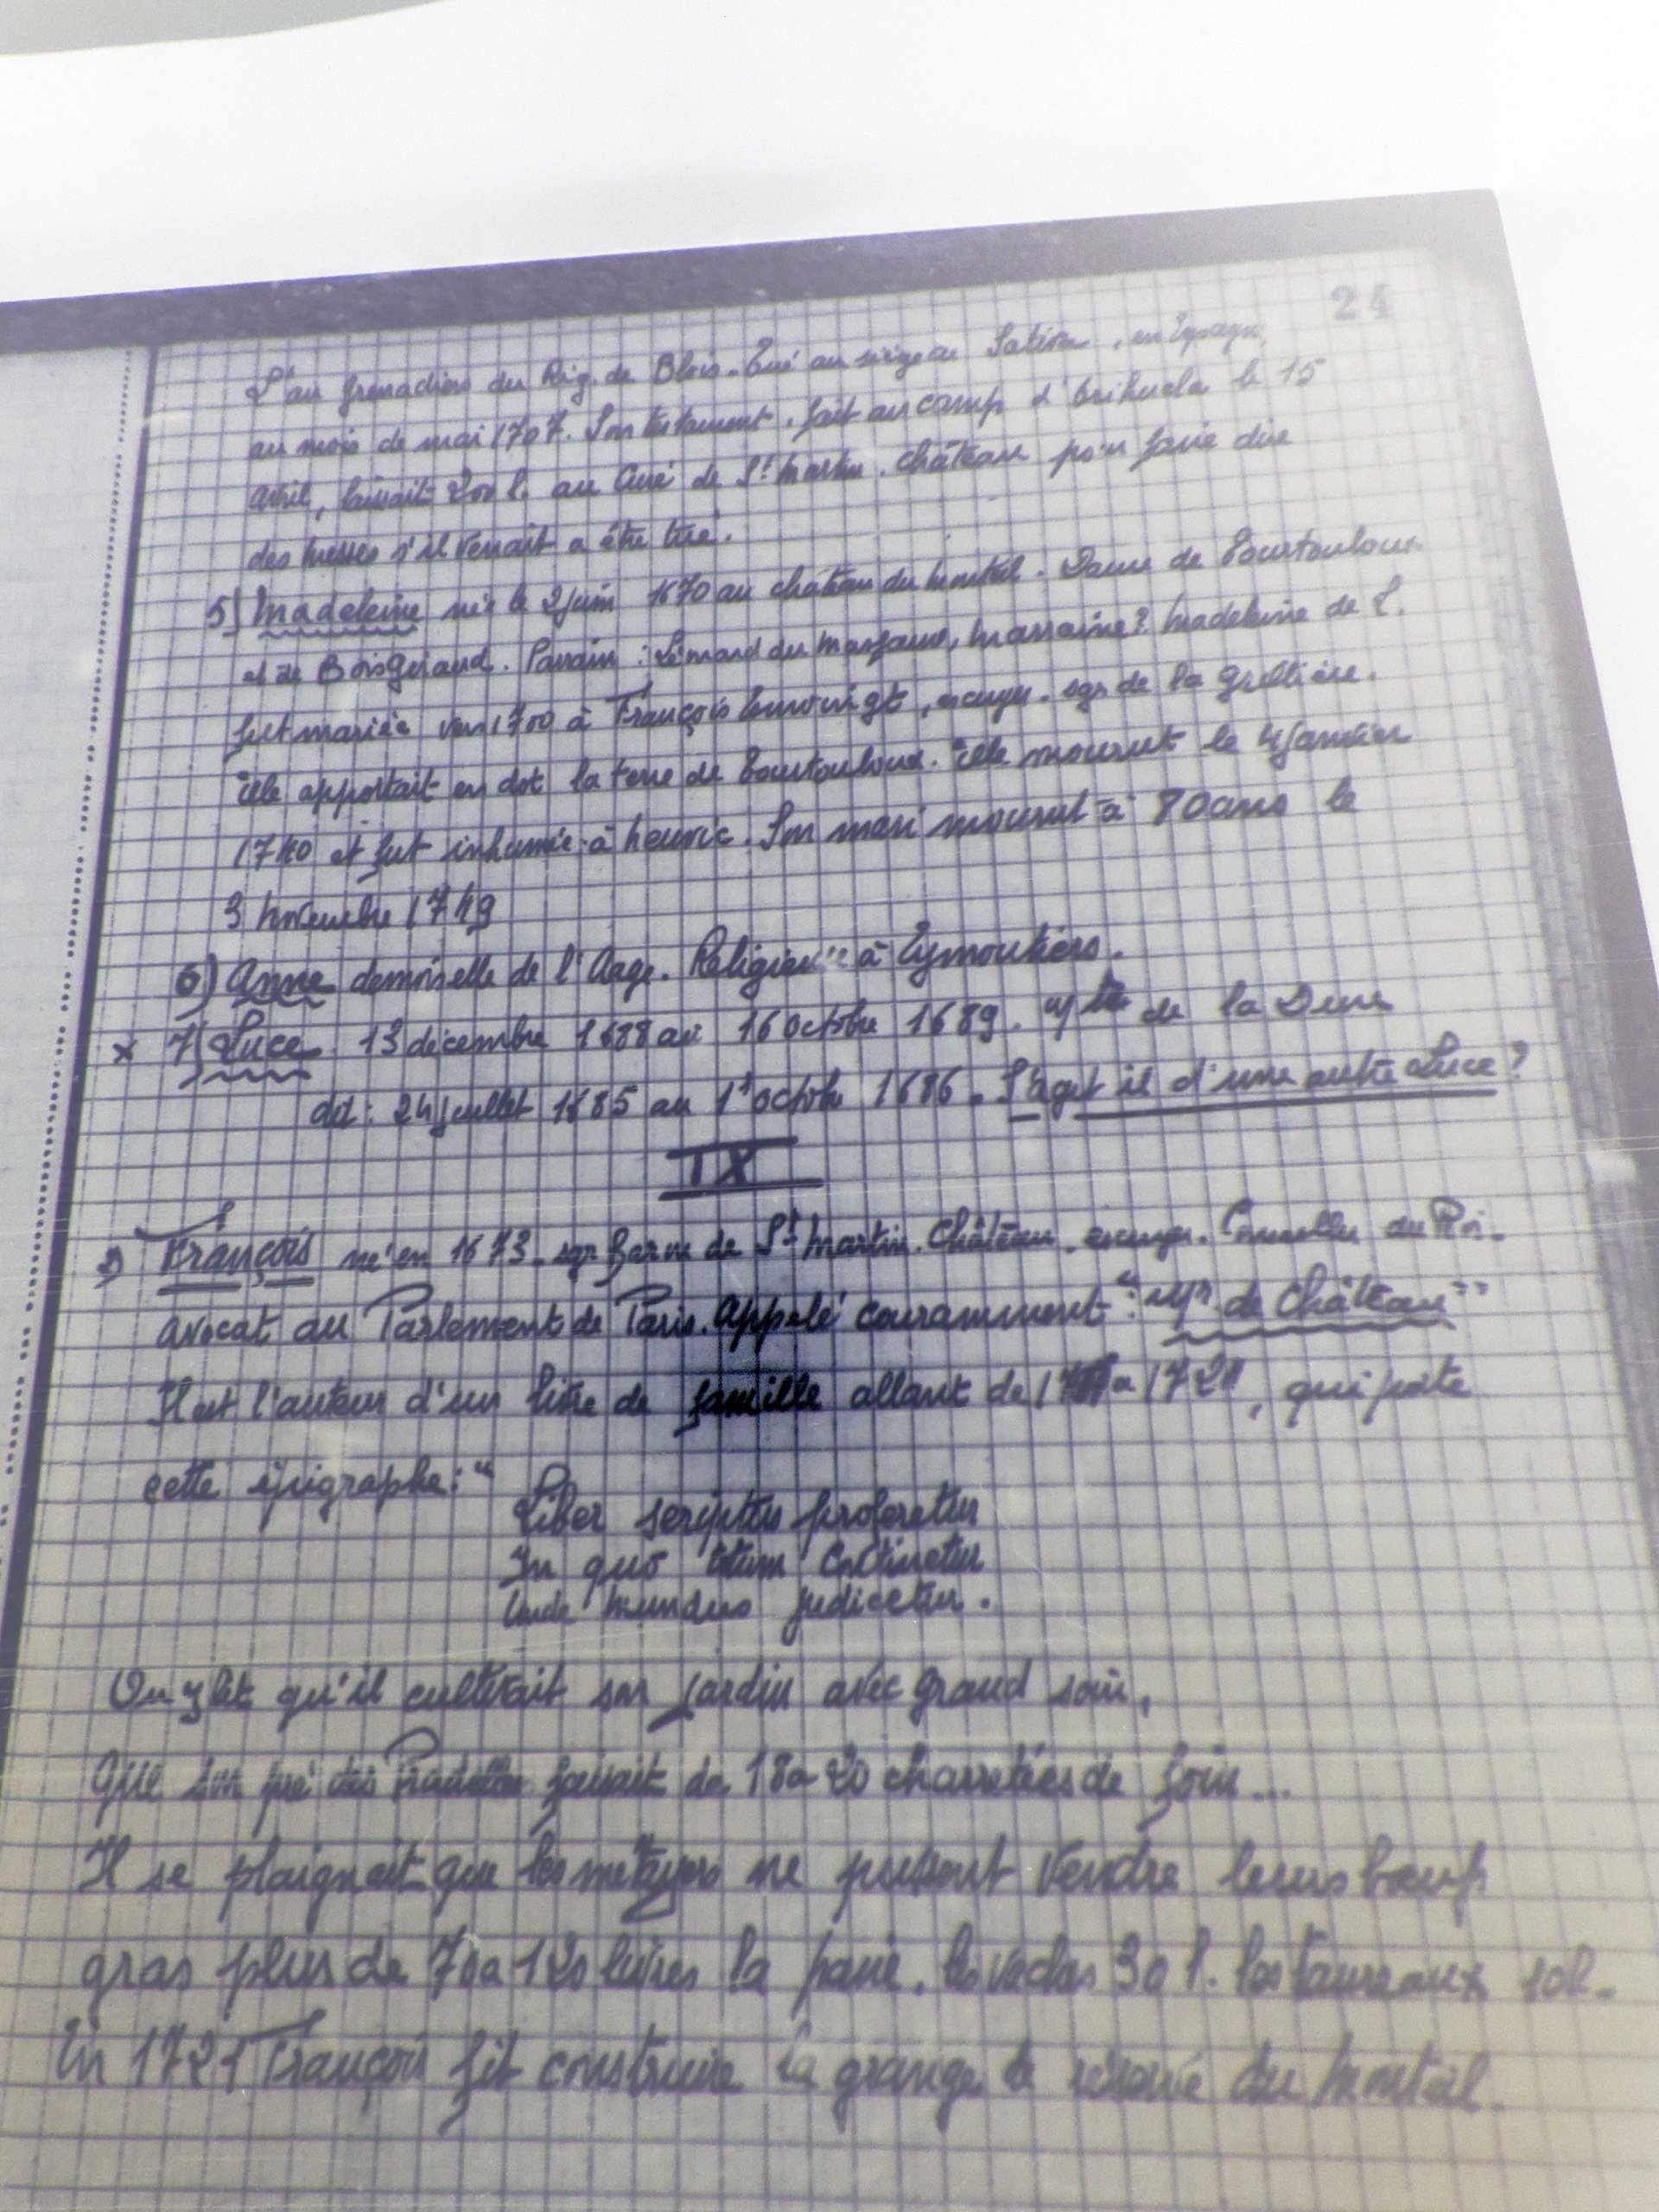 24
Lt au grenadiers du Rég. de Blois. Tué au siège de , en Espagne,
au mois de mai 1707. Son testament, fait au camp d'Orihuela le 15
Avril, laissait 200 l. au Curé de St Martin. Château pour faire dire
des messes s'il venait a être tué.
5) Madeleine née le 2 juin 1670 au château du Monteil. Dame de Tourtouloux
et de BoisGeraud. Parrain : Léonard du , Marraine? Madeleine de L.
fut mariée vers 1700 à François , escuyer. sgr de la Grellière.
Elle apportait en dot la terre de Tourtouloux. Elle mourut le 4 janvier
1740 et fut inhumée à Neuvic. Son mari mourut à 80 ans le
3 Novembre 1749
6) Anne demoiselle de l'Aage. Religieuse à Eymoutiers.
x 7) Luce. 13 décembre 1688 au 16 Octobre 1689. de la
dit : 24 juillet 1685 au 1er octobre 1686. S'agit il d'une autre Luce ?
IX
François né en 1673. sgr Baron de St Martin. Château. escuyer. Conseiller du Roi.
Avocat au Parlement de Paris. Appelé couramment : "Mr de Château"
Il est l'auteur d'un livre de famille allant de a 1721, qui porte
cette épigraphe : "
Liber scriptus proferetur
In quo totum Continetur
Unde mundus judicetur.
On y lit qu'il cultivait son jardin avec grand soin,
Que son pré des faisait de 18 a 20 charretées de foin...
Il se plaignait que les métayers ne puissent vendre leurs bœufs
gras plus de 70 a 120 livres la paire. les vaches 30 l. les taureaux 10 l.
En 1721 François fit construire la grange de réserve du Monteil.